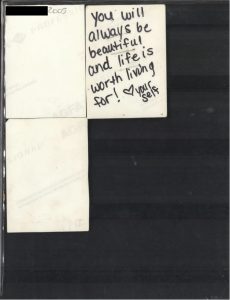 2005
you will
always be
beautiful
and life is
worth living
for! ♡ your
self